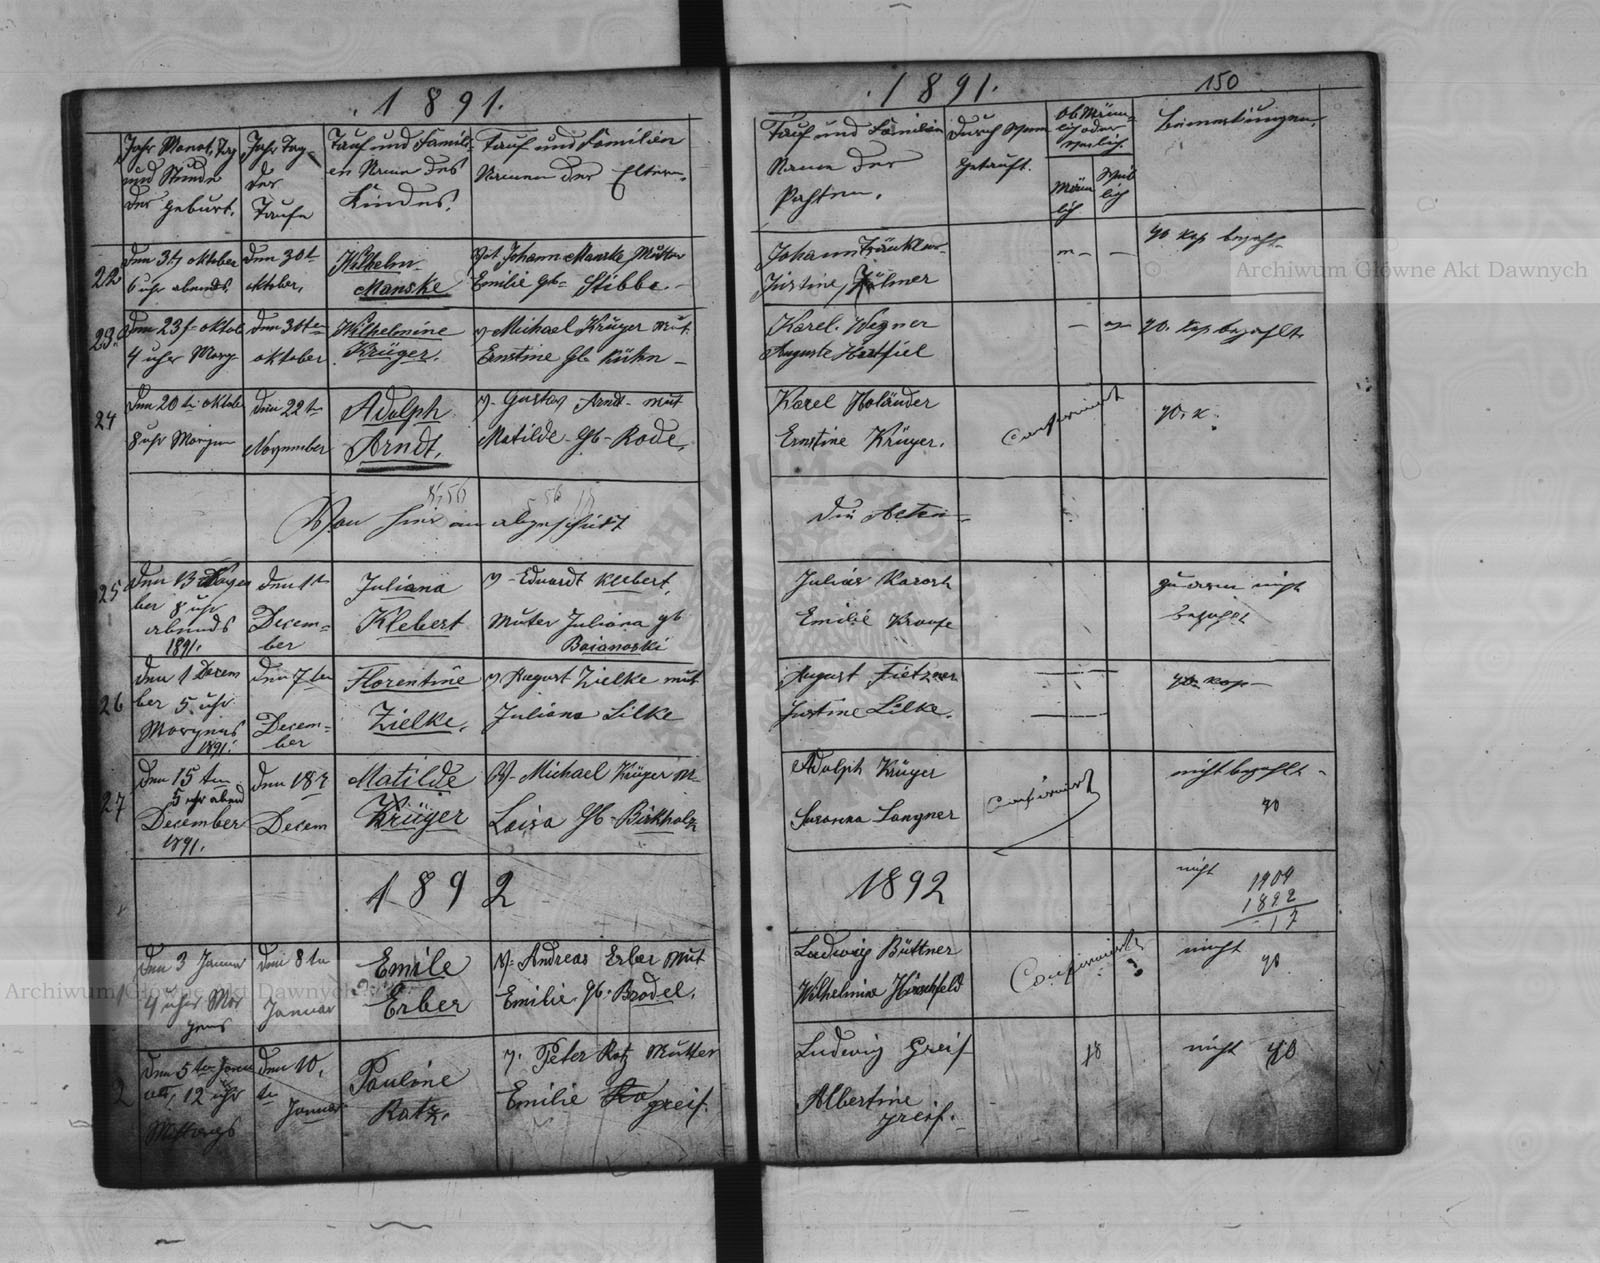 1891.
Jahr Monat, Tag
und Stunde
der Geburt.
Jahr Tag
der
Taufe
Tauf und Famili
en Name des
Kindes.
Tauf und Familien
Namen der Eltern.
22
den 3tz oktober
6 uhr abends.
den 30t
oktober.
Wilhelm
Manske
Vat Johann Manske Mutter
Emilie Gb- Stibbe.
23.
den 23t oktob
4 uhr Morg
den 30ten
oktober
Wilhelmine
Krüger.
v Michael Krüger Mut.
Ernstine Gb Kühn
24
den 20t oktober
8 uhr Morgen
den 22te
November
Adolph
Arndt.
v. Gustav Arndt. mut
Matilde - Gb - Rode.
Von hier an abgeschikt
25
den 13 Novem
ber 8 uhr
abends
1891.
den 1t
Decem=
ber
Juliana
Klebert
v - Eduardt Klebert,
Muter Juliana gb
Baianoski
26
den 1 Decem
ber 5 uhr
Morgens
1891.
den 7ten
Decem=
ber
Florentine
Zielke.
v August Zielke mut
Juliana Lilke
27
den 15 ten
5 uhr abend
December
1891.
den 18t
Decem
Matilde
Krüger
V- Michael Krüger M-
Luisa Gb - Birkholz
1892
1
den 3 Januar
4 uhr Mor
gens
den 8ten
Januar
Emile
Erber
V- Andreas Erber Mut
Emilie, Gb- Brodel.
2
den 5ten Janu
ar, 12 uhr
Mittags
den 10.
te
Januar
Pauline
Ratz.
v. Peter Ratz Mutter
Emilie greif.
1891.
150
Tauf und Familien
Name der
Pahten.
Durch Wem
Getauft.
ob Män-
lich oder
weilich
Män
lich
Weib
lich
Bemerkungen.
Johann Fränkler
Justine, Fölmer
m
70 Kop bezahlt
Karel. Wegner
Auguste Hartfiel
70. Kop bezahlt
Karel Holänder
Ernstine Krüger.
Confirmirt
70. K.
Die Acten
Julius Karosk
Emilie Krause
zu arm nicht
bezahlt
August Fietzner
Justine Lilke.
70 Kop
Adolph Krüger
Susanna Langner
Confirmirt
nicht bezahlt
70
1892
nicht
1909
1892
17
Ludwig Büttner
Wilhelmine Hirschfeld
Confirmirt
nicht
70
Ludwig Greif
Albertine
greif.
18
nicht 70
Archiwum Główne Akt Dawnych
Archiwum Główne Akt Dawnych